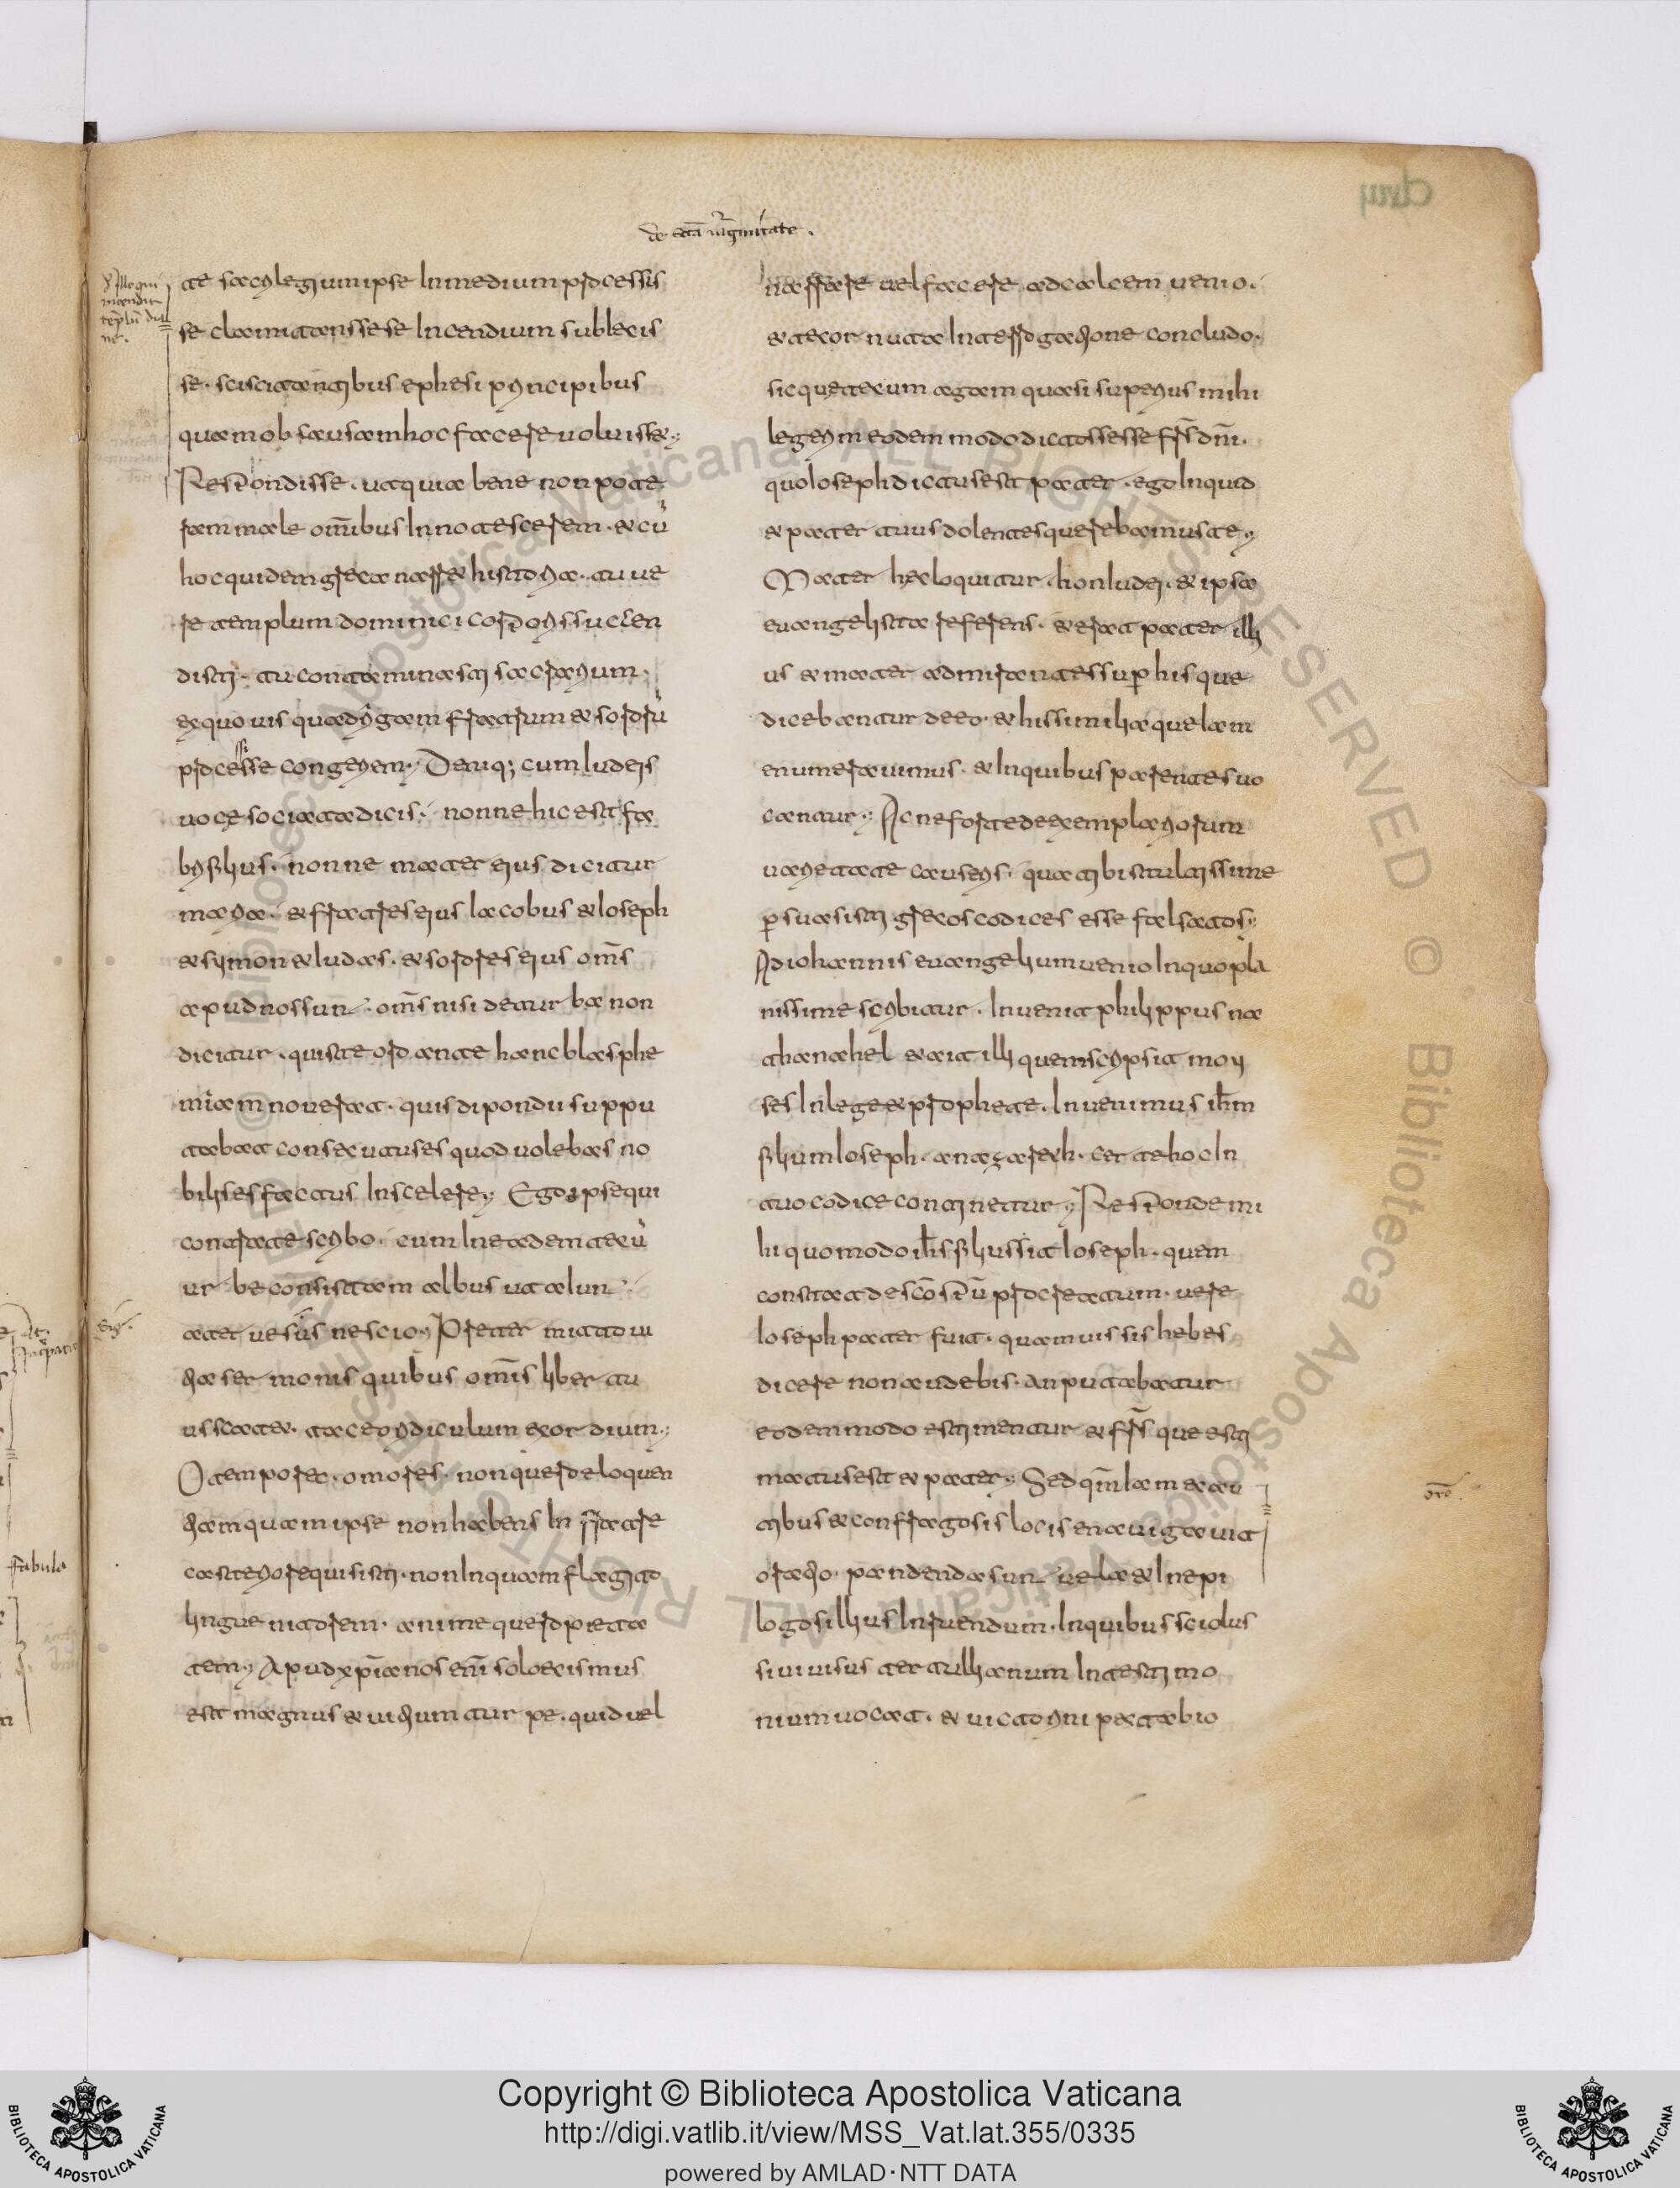 de scā uirginitate.
te sacrilegium ipse in medium processis
se clamitans sese incendium sublecis
se. sciscitantibus ephesi principibus
quam ob causam hoc facere uoluisset;
Respondisse. ut quia bene non pote
ram male omībus innotescerem. et cū
hoc quidem greca narret historia. tu ue
ro templum dominici corporis succen
disti. tu contaminasti sacrarium
ex quo uis quadrigam fratrum et sororū
processisse congeriem; Deniq; cum iudeis
uoce sociata dicis. nonne hic est fa
bri filius. nonne mater eius dicitur
maria. et fratres eius iacobus et ioseph
et symon et iudas. et sorores eius om̄s
apud nos sunt. om̄s nisi de turba non
dicitur. quis te oro ante hanc blasphe
miam nouerat. quis dipondii suppu
tabat consecutus es quod uolebas no
bilis es factus in scelere; Ego ipse qui
contra te scribo. cum in eadem tecū
urbe consistam albus ut aiunt
ater ue sis nescio; Preter mitto ui
tia sermonis quibus om̄is liber tu
us scatet. taceo ridiculum exordium;
O tempora. o mores. non quero eloquen
tiam quam ipse non habens in fratre
casterio requisisti. non inquam flagito
lingue nitorem. anime quero pieta
tem; Apud xp̄ianos enī soloecismus
est magnus et uitium turpe. quid uel
narrare uel facere ad calcem uenio.
et te cornuta interrogatione concludo.
sicque tecum agam quasi superius nihil
legerim eodem modo dictos esse frs dn̄i.
quo ioseph dictus est pater. ego inquid
et pater tuus dolentes querebamus te;
Mater hec loquitur non iudei. et ipsa
euangelista referens. et erat pater illi
us et mater admirantes sup his que
dicebantur de eo. et his similia que iam
enumerauimus. et in quibus parentes uo
cantur; Ac ne forte de exemplariorum
uarietate causeris. quia tibi stultissime
p suasisti grecos codices esse falsatos;
Ad iohannis euangelium uenio in quo pla
nissime scribitur. inuenit philippus na
thanahel et ait illi quem scripsit moy
ses in lege et prophete. inuenimus ih̄m
filium ioseph. a nazareth. certe hoc in
tuo codice continetur; Responde mi
hi quomodo ih̄s filius sit ioseph. quem
constat de sc̄o sp̄ū procreatum. uere
ioseph pater fuit. quamuis sis hebes
dicere non audebis. an putabatur
eodem modo estimentur et frs̄ que esti
matus est et pater; Sed qm̄ iam e cau
tibus et confragosis locis enauigauit
oratio. pandenda sunt uela et in epi
logos illius inruendum. in quibus sciolus
sibi uisus tertullianum in testimo
nium uocat. et uictorini petabio